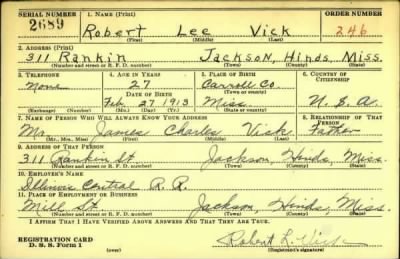 SERIAL NUMBER 1. NAME (Print) ORDER NUMBER
2689 Robert Lee Vick 246
(First) (Middle) (Last)
2. ADDRESS (Print)
311 Rankin Jackson, Hinds, Miss.
(Number and street or R. F. D. number) (Town) (County) (State)
3. TELEPHONE 4. AGE IN YEARS 5. PLACE OF BIRTH 6. COUNTRY OF CITIZENSHIP
None 27 Carroll Co.
DATE OF BIRTH (Town or county)
Feb. 27 1913 Miss. U. S. A.
(Exchange) (Number) (Mo.) (Day) (Yr.) (State or country)
7. NAME OF PERSON WHO WILL ALWAYS KNOW YOUR ADDRESS 8. RELATIONSHIP OF THAT PERSON
Mr. James Charles Vick Father
(Mr., Mrs., Miss) (First) (Middle) (Last)
9. ADDRESS OF THAT PERSON
311 Rankin St. Jackson, Hinds, Miss.
(Number and street or R. F. D. number) (Town) (County) (State)
10. EMPLOYER'S NAME
Illinois Central R. R.
11. PLACE OF EMPLOYMENT OR BUSINESS
Mill St. Jackson, Hinds, Miss.
(Number and street or R. F. D. number) (Town) (County) (State)
I AFFIRM THAT I HAVE VERIFIED ABOVE ANSWERS AND THAT THEY ARE TRUE.
REGISTRATION CARD Robert L. Vick
D. S. S. Form 1 (Registrant's signature)